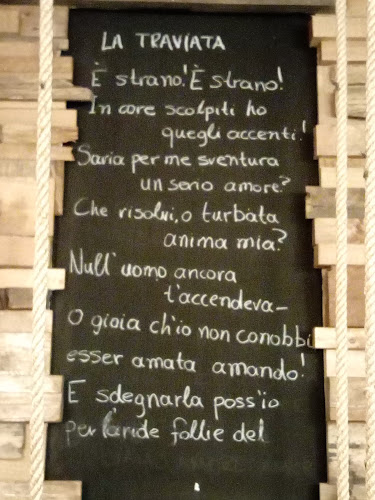 LA TRAVIATA
È strano! È strano!
In core scolpiti ho
quegli accenti!
Saria per me sventura
un serio amore?
Che risolvi, o turbata
anima mia?
Null'uomo ancora
t'accendeva-
O gioia ch'io non conobbi
esser amata amando!
E sdegnarla poss'io
per l'aride follie del